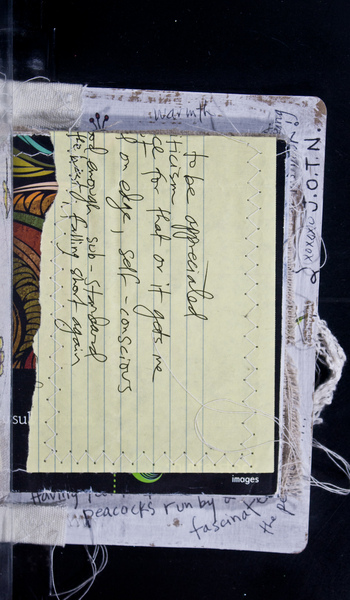 to be appreciated
ticism
ce for that or it gets me
f on edge, self-conscious
od enough sub-standard
falling short again
J.O.T.N.
xoxoxo
sul
images
Having
peacocks run by a
fascinate
the pe